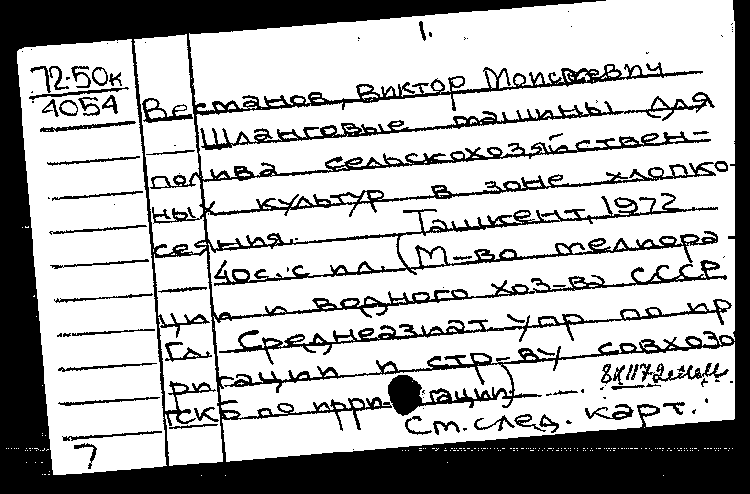 1.
72-50к
4054
Весманов, Виктор Моисеевич
Шланговые машины для
полива сельскохозяйствен-
ных культур в зоне хлопко-
сеяния. Ташкент, 1972
40с. с ил. (М-во мелиора-
ции и водного хоз-ва СССР
Гл. Среднеазиат. упр по ир
ригации и стр-ву совхозо
ГСКБ по ирригации)
См. след. карт.
7